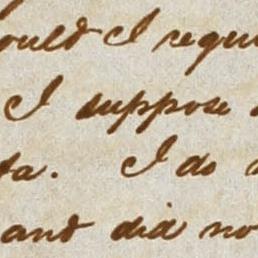 ould I requi
I suppose
ta. I do
and did no